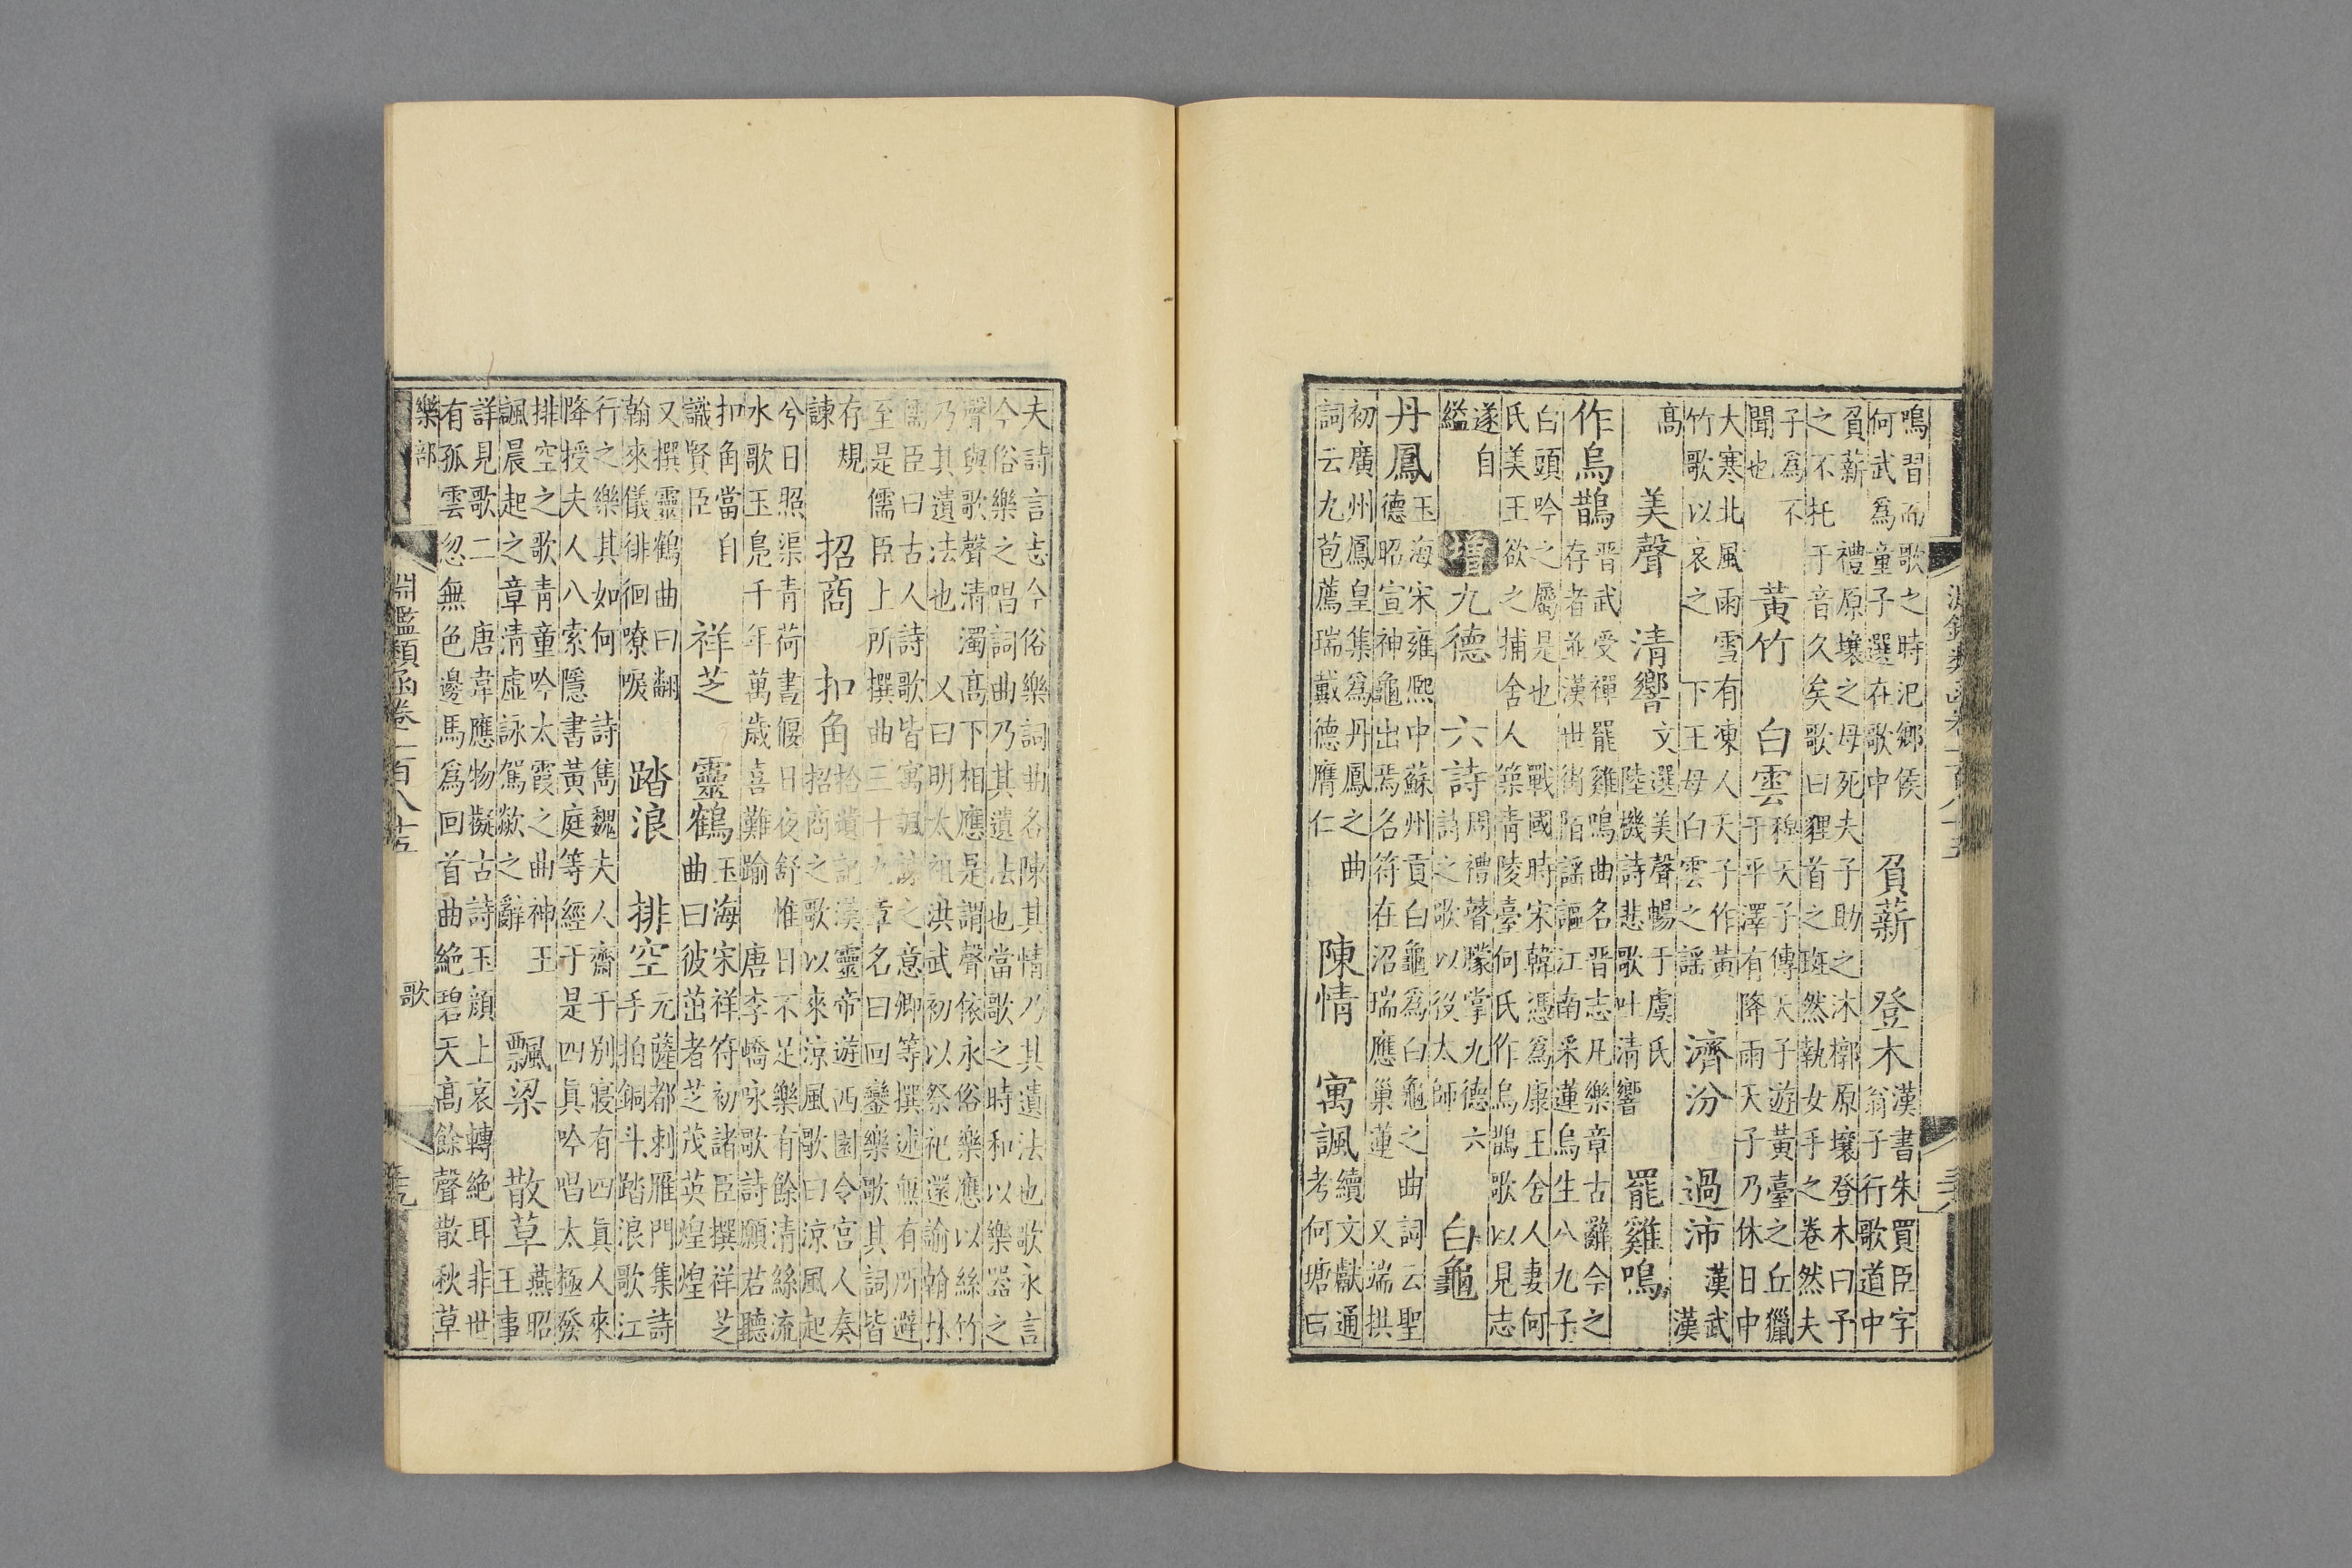 淵鑑類函卷一百八十五
鳴習而歌之時汜鄉侯
何武爲童子選在歌中
負薪　登木
漢書朱買臣字
翁子行歌道中
負薪　禮原壤之母死夫子助之沐槨原壤登木曰予
之不托于音久矣歌曰貍首之斑然執女手之卷然夫
子爲不
聞也
黃竹　白雲
穆天子傳天子遊黃臺之丘獵
于平澤有降雨天子乃休日中
大寒北風雨雪有凍人天子作黃
竹歌以哀之　下王母白雲之謠
濟汾　過沛
漢武
漢
高
美聲　清響
文選美聲暢于虞氏
陸機詩悲歌吐清響
罷雞鳴
作烏鵲
晋武受禪罷雞鳴曲名晋志凡樂章古辭今之
存者並漢世街陌謠謳江南采蓮烏生八九子
白頭吟之屬是也　戰國時宋韓憑爲康王舍人妻何
氏美王欲之捕舍人　築靑陵臺何氏作烏鵲歌以見志
遂自
縊
增　九德　六詩
周禮瞽矇掌九德六
詩之歌以役太師
白龜
丹鳳
玉海宋雍熙中蘇州貢白龜爲白龜之曲詞云聖
德昭宣神龜出焉名符在沼瑞應巢蓮　又端拱
初廣州鳳皇集爲丹鳳之曲
詞云九苞薦瑞戴德膺仁
陳情　寓諷
續文獻通
考何塘曰
夫詩言志今俗樂詞曲名陳其情乃其遺法也歌永言
今俗樂之唱詞曲乃其遺法也當歌之時和以樂器之
聲與歌聲清濁高下相應是謂聲依永俗樂應以絲竹
乃其遺法也　又曰明太祖洪武初以祭祀還諭翰林
儒臣曰古人詩歌皆寓諷諫之意卿等撰述無有所避
至是儒臣上所撰曲三十九章名曰回鑾樂歌其詞皆
存規
諫
招商　扣角
拾遺記漢靈帝遊西園令宮人奏
招商之歌以來涼風歌曰涼風起
兮日照渠靑荷晝偃日夜舒惟日不足樂有餘清絲流
水歌玉鳬千年萬歲喜難踰　唐李嶠咏歌詩願君聽
扣角當自
識賢臣
祥芝　靈鶴
玉海宋祥符初諸臣撰祥芝
曲曰彼茁者芝茂英煌煌
又撰靈鶴曲曰翩
翰來儀徘徊嘹唳
踏浪　排空
元薩都刺雁門集詩
手拍銅斗踏浪歌江
行之樂其如何　詩雋魏夫人齋于別寢有四眞人來
降授夫人八索隱書黃庭等經于是四眞吟唱太極發
排空之歌靑童吟太霞之曲神王
諷晨起之章清虛詠駕歘之辭
飄梁　散草
燕昭
王事
詳見歌二　唐韋應物擬古詩玉顏上哀轉絕耳非世
有孤雲忽無色邊馬爲回首曲絕碧天高餘聲散秋草
樂部
淵鑑類函卷一百八十五
歌